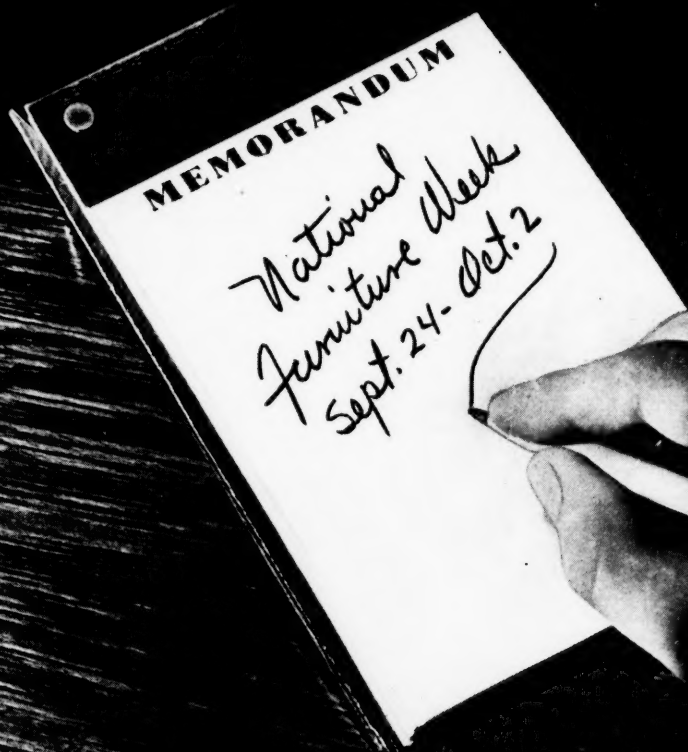 MEMORANDUM
National
Furniture Week
Sept. 24 - Oct. 2